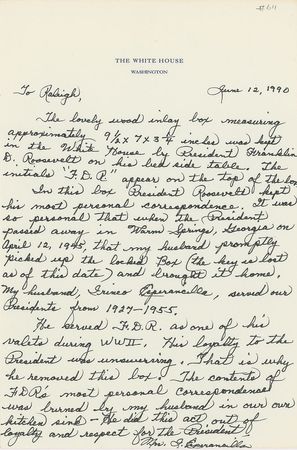 #64
THE WHITE HOUSE
WASHINGTON
To Raleigh, June 12, 1990
The lovely wood inlay box measuring
approximately 9½ x 7 x 3¾ inches was kept
in the White House by President Franklin
D. Roosevelt on his bed side table. The
initials "F.D.R." appear on the top of the box.
In this box President Roosevelt kept
his most personal correspondence. It was
so personal that when the President
passed away in Warm Springs, Georgia on
April 12, 1945, that my husband promptly
picked up the locked Box (the key is lost
as of this date) and brought it home.
My husband, Irineo Esperancilla, served our
Presidents from 1927-1955.
He served F.D.R. as one of his
valets during WWII. His loyalty to the
President was unswerving. That is why
he removed this box. The contents of
FDR's most personal correspondence
was burned by my husband in our our
kitchen sink - He did this act out of
loyalty and respect for the President.
Mrs. I. Esperancilla